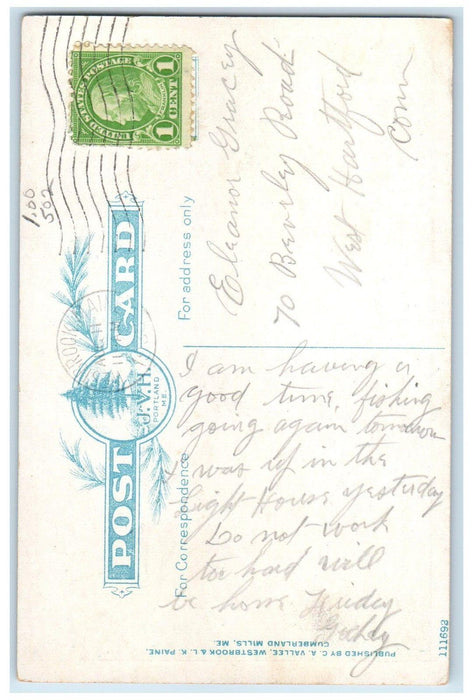 UNITED STATES POSTAGE
1 CENT 1
1.00
502
POST CARD
J.V.H.
PORTLAND
ME.
For address only
Eleanor Gracey
70 Beverly Road
West Hartford
Conn
For Correspondence
I am having a
good time, fishing
going again tomorrow
I was up in the
Light House yesterday
Do not work
too hard will
be home Friday
PUBLISHED BY C. A. VALLEE, WESTBROOK & L. K. PAINE,
CUMBERLAND MILLS, ME.
111692